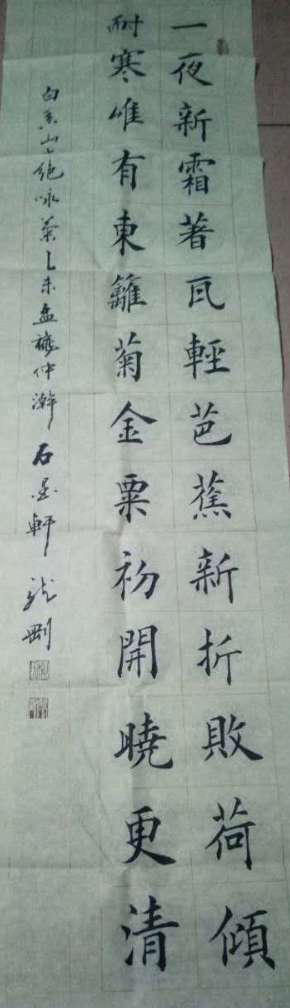 一夜新霜著瓦輕芭蕉新折敗荷傾
耐寒唯有東籬菊金粟初開曉更清
白香山七絕咏菊乙未孟秋仲澣石墨軒